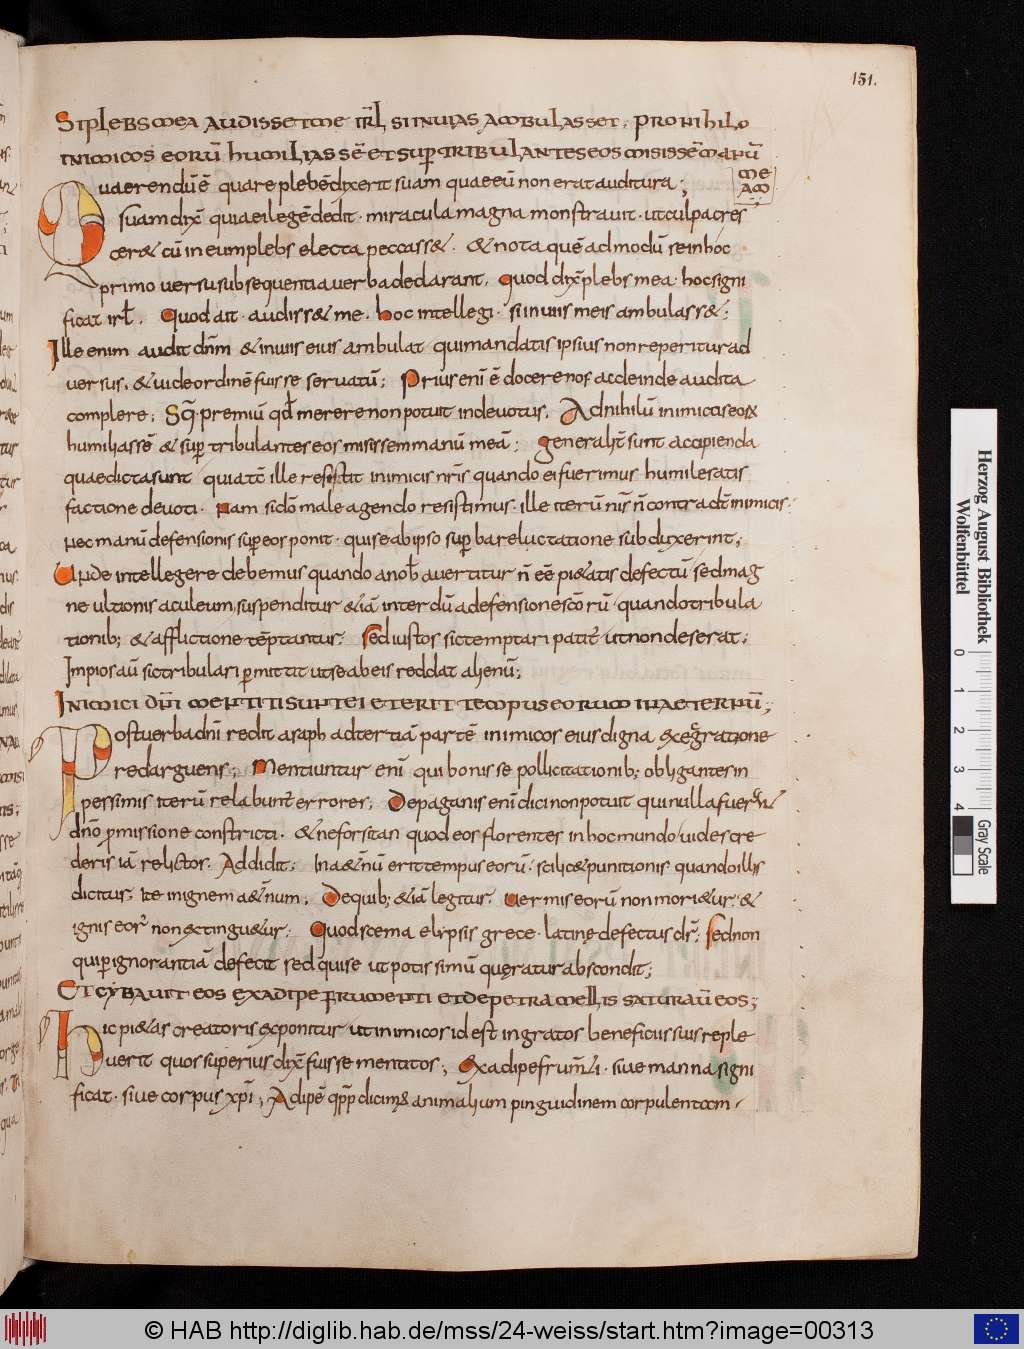 151.
Si plebs mea audisset me isr̄l. si in uias ambulasset. pro nihilo
inimicos eorū humiliassē et sup tribulantes eos misissē manū
meam;
Quaerendū ē quare plebē dixerit suam quae eū non erat auditura;
suam dix̄ quia ei legē dedit. miracula magna monstrauit. ut culpa cres
cer& cū in eum plebs electa peccass&. & nota quēadmodū se in hoc
primo uersu subsequentia uerba declarant. Quod dix̄ plebs mea. hoc signi
ficat isrl̄. Quod ait. audiss& me. hoc intellegi. si in uiis meis ambulass&;
Ille enim audit dn̄m & in uiis eius ambulat qui mandatis ipsius non reperitur ad
uersus. & uide ordinē fuisse seruatū; Prius enī ē docere nos ac deinde audita
complere; Sq̄. premiū qd̄ merere non potuit indeuotus. Ad nihilū inimicis eorꝝ
humiliassē & sup tribulantes eos misissem manū meā; Generalit̄ sunt accipienda
quae dicta sunt quia tc̄ ille resistit inimicis nr̄is quando ei fuerimus humiles satis
factione deuoti. Nam sicīd male agendo resistimus. ille iterū nr̄is n̄ contradic̄ inimicis.
nec manū defensionis sup eos ponit. qui se ab ipso superba reluctatione subduxerint;
Unde intellegere debemus quando a nob̄ auertitur n̄ eē pi&atis defectū sed mag
ne ultionis aculeum. suspenditur &iā interdū a defensione scōrū. quando tribula
tionib; & afflictione tēptantur. Sed iustos sic temptari patit̄ ut non deserat.
Impios aū sic tribulari pmittit ut se ab eis reddat alienū;
Inimici dn̄i mentiti sunt ei et erit tempus eorum in aeternū;
Post uerba dn̄i redit asaph ad tertiā partē inimicos eius digna exsecratione
redarguens; Mentiuntur enī qui bonis se pollicitationib; obligantes in
pessimis iterū relabunt̄ errores; De paganis enī dici non potuit qui nulla fuer̄
dn̄o pmissione constricti. & ne forsitan quod eos florentes in hoc mundo uides cre
deris iā relictos. Addidit; In a&̄nū erit tempus eorū. scilic& punitionis quando illis
dicitur; Ite in ignem a&̄num. De quib; &iā legitur. Uermis eorū non mori&ur. &
ignis eorˀ non extingu&ur; Quod scema elypsis grece. latinę defectus dr̄; Sed non
qui p ignorantiā defecit sed qui se ut potissimū quęratur abscondit;
Et cybauit eos ex adipe frumenti et de petra mellis saturauit eos;
Hic pi&as creatoris exponitur ut inimicos id est ingratos beneficiis suis reple
uerit quos superius dix̄ fuisse mentitos; Ex adipe frum̄ti. siue manna signi
ficat. siue corpus xp̄i; Adipē qp̄p dicimꝰ animalium pinguidinem corpulentam
Herzog August Bibliothek
Wolfenbüttel
0 1 2 3 4
Gray Scale
© HAB http://diglib.hab.de/mss/24-weiss/start.htm?image=00313